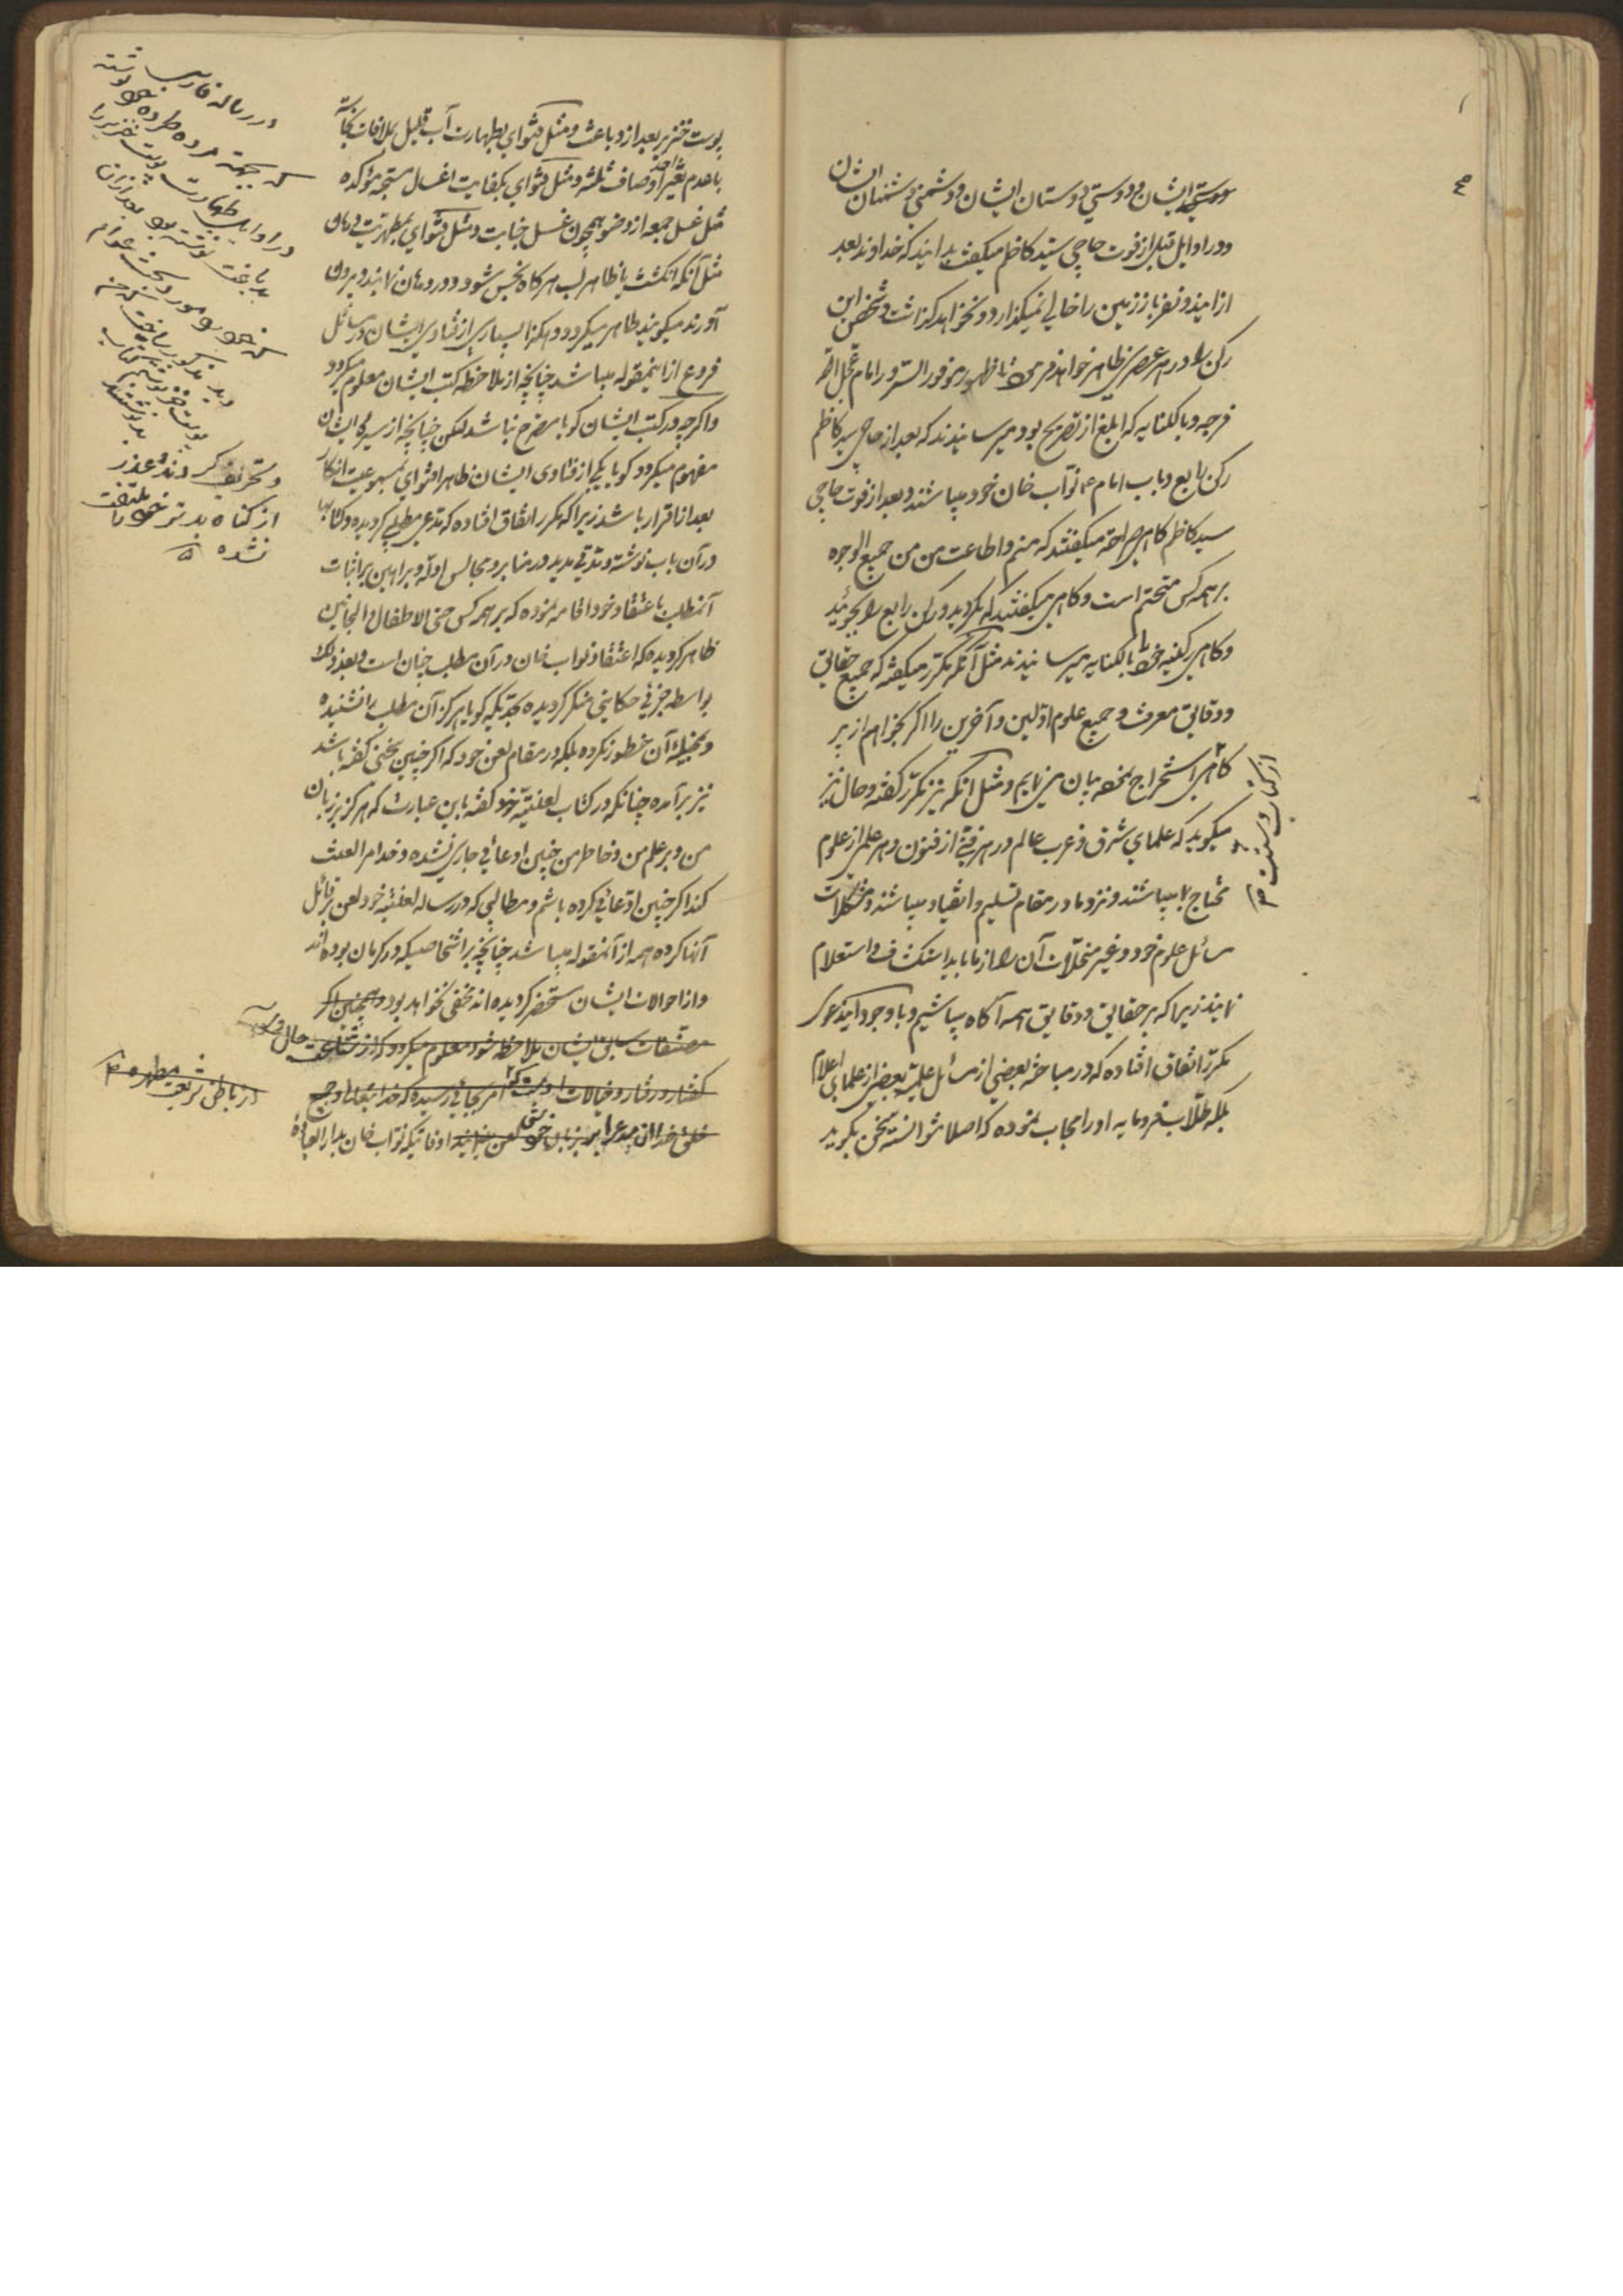 دوستی ایشان و دوستی دوستان ایشان و دشمنی دشمنان ایشان
و در اوایل قبل از فوت حاجی سید کاظم میگفتند بدانید که خداوند بعد
از اینها دو نفر باز زمین را خالی نمیگذارد و نخواهد گذاشت و شخص این
رکن را در هر عصری ظاهر خواهد فرمود تا ظهور موفور السرور امام عجل الله
فرجه و بالکنایه که ابلغ از تصریح بود میرسانیدند که بعد از حاجی سید کاظم
رکن رابع و باب امام ع نواب خان خود میباشند و بعد از فوت حاجی
سید کاظم گاهی صراحة میگفتند که منم و اطاعت من من جمیع الوجوه
بر همه کس متحتم است و گاهی میگفتند که بگردید و رکن رابع را بجوئید
و گاهی رکنیت خود را بالکنایه میرسانیدند مثل آنکه مکرر میگفتند که جمیع حقایق
و دقایق معرفت و جمیع علوم اولین و آخرین را اگر بخواهم از پر
کاهی استخراج نموده بیان می نمایم و مثل آنکه نیز مکرر گفته و حال نیز
میگوید که علمای شرق و غرب عالم در هر فنی از فنون و هر علمی از علوم
محتاج بما میباشند و نزد ما در مقام تسلیم و انقیاد میباشند و مشکلات
مسائل علوم خود و غیر منحلات آن را از ما باید استکشاف و استعلام
نمایند زیرا که بر حقایق و دقایق همه آگاه میباشیم و با وجود این دعوی
مکرر اتفاق افتاده که در مباحثه بعضی از مسائل علمیه بعضی از علمای اعلام
بلکه طلاب فرومایه او را مجاب نموده که اصلا نتوانسته سخن بگوید
از کتاب و سنت
پوست خنزیر بعد از دباغت و مثل فتوای بطهارت آب قلیل بملاقات نجاسة
با عدم تغیر احد اوصاف ثلثه و مثل فتوای بکفایت اغسال مستحبه مؤکده
مثل غسل جمعه از وضو همچون غسل جنابت و مثل فتوای بمطهریت دهان
مثل آنکه انگشت یا ظاهر لب هر گاه نجس شود و در دهان نمایند و بیرون
آورند میگویند طاهر میگردد و هکذا بسیاری از فتاوی ایشان در مسائل
فروع از این مقوله میباشد چنانچه از ملاحظه کتب ایشان معلوم میگردد
و اگر چه در کتب ایشان گویا مصرح نباشد لکن چنانچه از سیره ایشان
مفهوم میگردد گویا یکی از فتاوی ایشان ظاهرا فتوای بمسموعیت انکار
بعد از اقرار باشد زیرا که مکرر اتفاق افتاده که مدعی مطلبی گردیده و کتابها
در آن باب نوشته و مدتی مدید در منابر و مجالس ادله و براهین بر اثبات
آنمطلب باعتقاد خود اقامه نموده که بر همه کس حتی الاطفال و المجانین
ظاهر گردیده که اعتقاد نواب خان در آن مطلب چنان است و بعد ذلک
بواسطه حرفی حکایتی منکر گردیده بحدیکه گویا هرگز آن مطلب را نشنیده
و بمخیله آن خطور نکرده بلکه در مقام لعن خود که اگر چنین سخنی گفته باشد
نیز برآمده چنانکه در کتاب لعنیه خود گفته باین عبارت که هرگز بر زبان
من و بر قلم من و خاطر من چنین ادعائی جاری نشده و خدا مرا لعنت
کند اگر چنین ادعائی کرده باشم و مطالبی که در رساله لعنیه خود لعن بر قائل
آنها کرده همه از آنمقوله میباشد چنانچه بر اشخاصیکه در کرمان بوده اند
و از احوالات ایشان مستحضر گردیده اند مخفی نخواهد بود و همچنین اگر
مصنفات سابق ایشان ملاحظه شود معلوم میگردد که از شناعت حال و
گفتار و رفتار و خیالات امر بجائی رسیده که خدا و جمیع
خلق خدا بر زبان خودش لعن اوقاتیکه نواب خان بدار العباده
در رساله فارسی
که بجهت خود نوشته
در اوایل طهارت پوست خنزیر را
بدباغت نوشته بود بعد از آن
که خود را مورد بحث عوام
دید مذکور ساخت که من
پوست خز نوشتم کتاب
بد نوشتند
و تحریف کردند و عذر
از گناه بدتر خود را ملتفت
نشده
از باطن شریعت مطهره